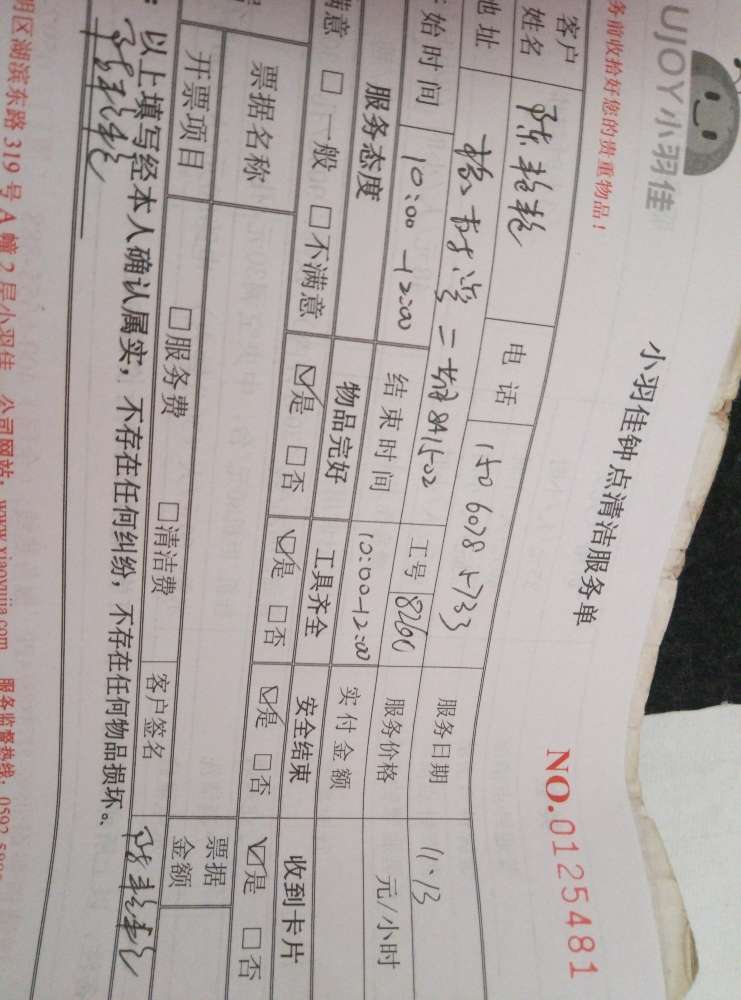 UJOY小羽佳
小羽佳钟点清洁服务单
务前收拾好您的贵重物品！
NO.0125481
客户姓名 电话 150 6078 5733 服务日期 11.13
地址 工号 8260 服务价格 元/小时
始时间 10:00-12:00 结束时间 10:00-12:00 实付金额
服务态度 物品完好 工具齐全 安全结束 收到卡片
意 □一般 □不满意 ☑是 □否 ☑是 □否 ☑是 □否 ☑是 □否
票据名称
开票项目 □服务费 □清洁费 票据金额
客户签名
：以上填写经本人确认属实，不存在任何纠纷，不存在任何物品损坏。
明区湖滨东路 319 号 A 幢 2 层小羽佳 公司网站：www.xiaoyujia.com 服务监督热线：0592